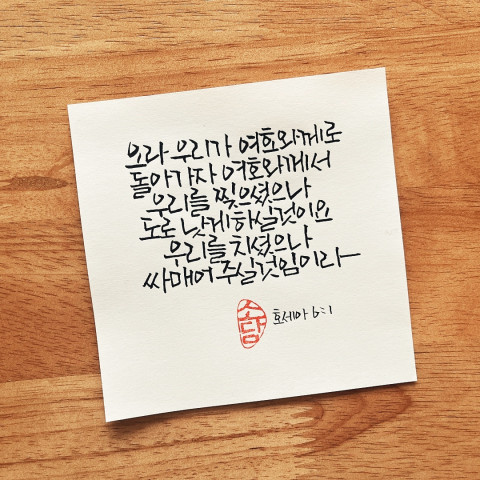 오라 우리가 여호와께로
돌아가자 여호와께서
우리를 찢으셨으나
도로 낫게 하실 것이요
우리를 치셨으나
싸매어 주실 것임이라
소담
호세아 6:1